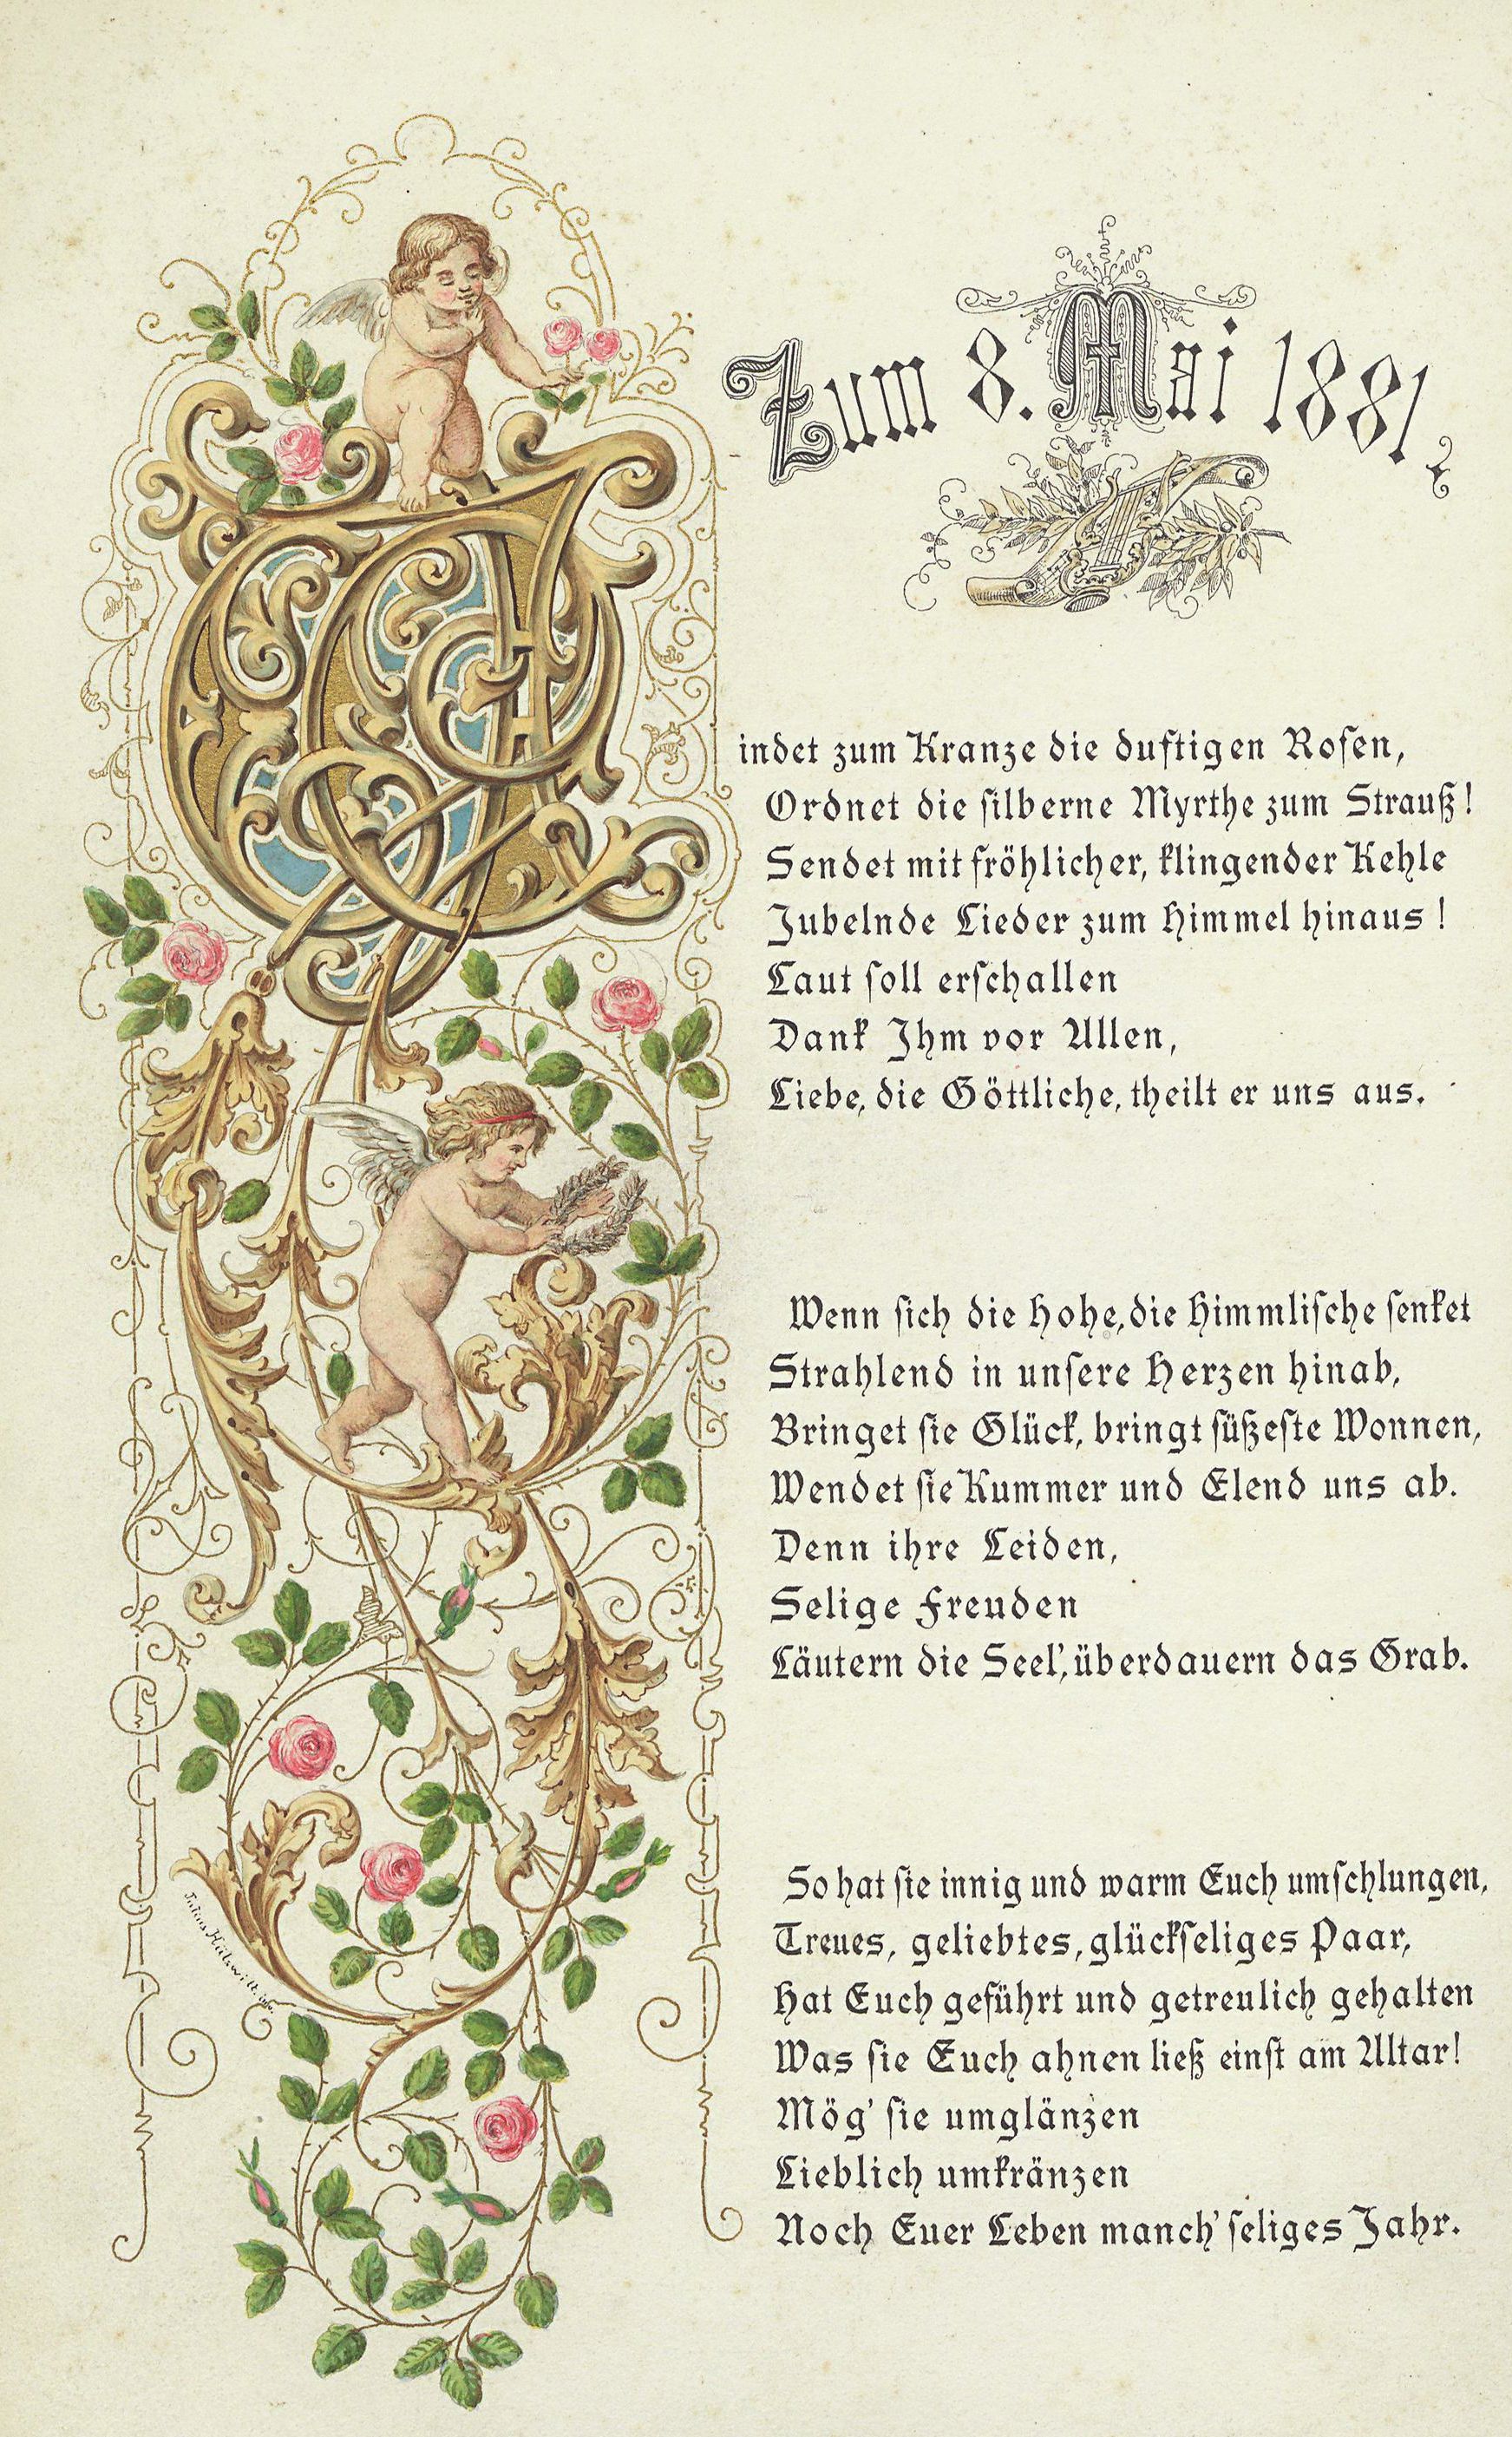 Zum 8. Mai 1881
Windet zum Kranze die duftigen Roſen,
Ordnet die ſilberne Myrthe zum Strauß!
Sendet mit fröhlicher, klingender Kehle
Jubelnde Lieder zum Himmel hinaus!
Laut ſoll erſchallen
Dank Ihm vor Allen,
Liebe, die Göttliche, theilt er uns aus.
Wenn ſich die Hohe, die Himmliſche ſenket
Strahlend in unſere Herzen hinab,
Bringet ſie Glück, bringt ſüßeſte Wonnen,
Wendet ſie Kummer und Elend uns ab.
Denn ihre Leiden,
Selige Freuden
Läutern die Seel', überdauern das Grab.
So hat ſie innig und warm Euch umſchlungen,
Treues, geliebtes, glückſeliges Paar,
Hat Euch geführt und getreulich gehalten
Was ſie Euch ahnen ließ einſt am Altar!
Mög' ſie umglänzen
Lieblich umkränzen
Noch Euer Leben manch' ſeliges Jahr.
Julius Hülswitt